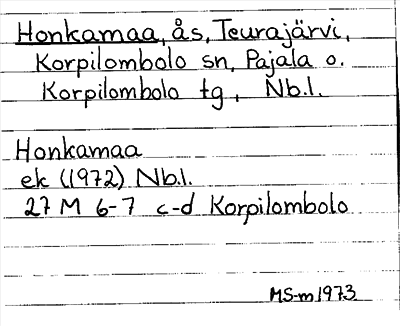 Honkamaa, ås, Teurajärvi,
Korpilombolo sn, Pajala o.
Korpilombolo tg, Nb.l.
Honkamaa
ek (1972) Nb.l.
27 M 6-7 c-d Korpilombolo
MS-m 1973